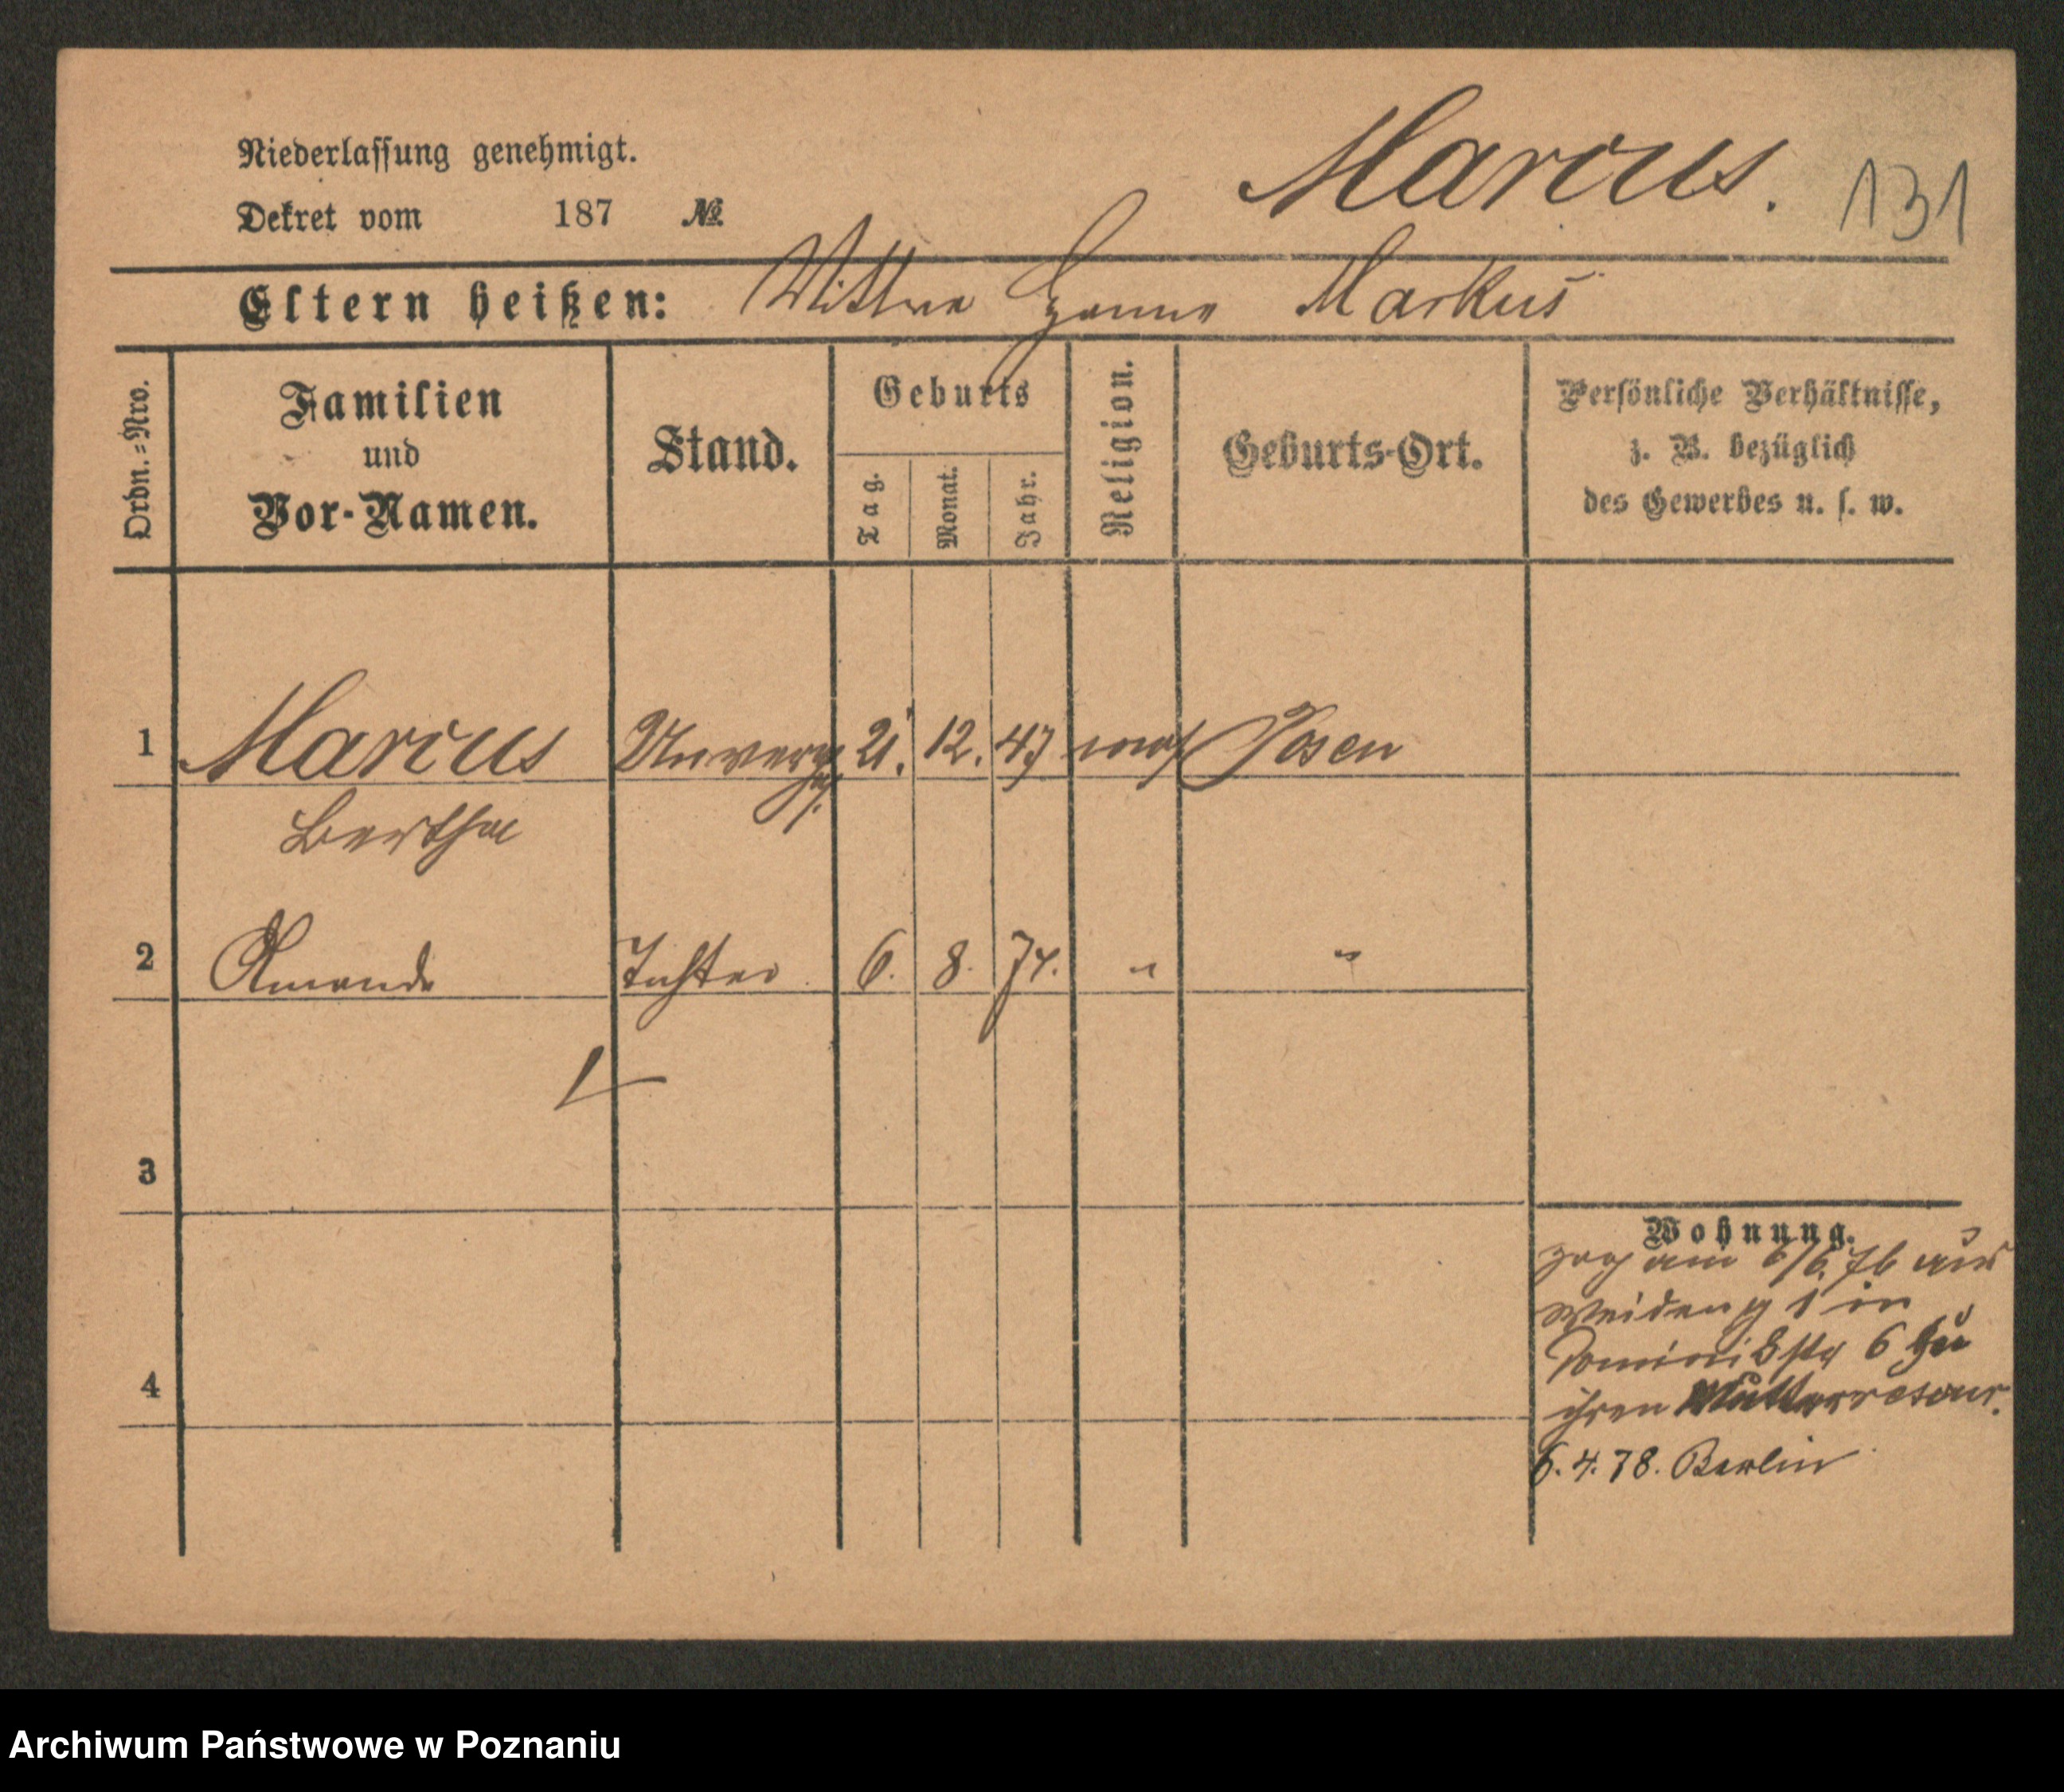 Niederlassung genehmigt.
Dekret vom 187 №
Marcus.
131
Eltern heißen: Wittwe Hanne Markus
Ordn.=Nro.
Familien
und
Vor-Namen.
Stand.
Geburts
Tag.
Monat.
Jahr.
Religion.
Geburts-Ort.
Persönliche Verhältnisse,
z. B. bezüglich
des Gewerbes u. s. w.
1 Marcus 21. 12. 47 mos Posen
Bertha
2 Amanda Tochter 6. 8. 74. " "
3
Wohnung.
zog am 6/6. 76 aus
1 in
6 zu
ihren
4
6. 4. 78. Berlin
Archiwum Państwowe w Poznaniu